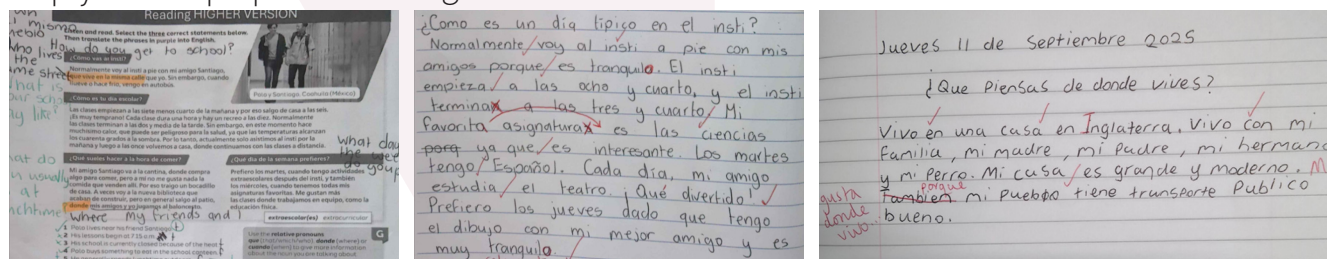 Reading HIGHER VERSION
Listen and read. Select the three correct statements below.
Then translate the phrases in purple into English.
How do you get to school?
¿Cómo vas al insti?
Normalmente voy al insti a pie con mi amigo Santiago,
que vive en la misma calle que yo. Sin embargo, cuando
llueve o hace frío, vengo en autobús.
Paco y Santiago, Coahuila (México)
¿Cómo es tu día escolar?
Las clases empiezan a las siete menos cuarto de la mañana y por eso salgo de casa a las seis.
¡Es muy temprano! Cada clase dura una hora y hay un recreo a las diez. Normalmente
las clases terminan a las dos y media de la tarde. Sin embargo, en este momento hace
muchísimo calor, que puede ser peligroso para la salud, ya que las temperaturas alcanzan
los cuarenta grados a la sombra. Por lo tanto, actualmente solo asistimos al insti por la
mañana y luego a las once volvemos a casa, donde continuamos con las clases a distancia.
What day
¿Qué sueles hacer a la hora de comer?
Mi amigo Santiago va a la cantina, donde compra
algo para comer, pero a mí no me gusta nada la
comida que venden allí. Por eso traigo un bocadillo
de casa. A veces voy a la nueva biblioteca que
acaban de construir, pero en general salgo al patio,
donde mis amigos y yo jugamos al baloncesto.
where my friends and I
¿Qué día de la semana prefieres?
Prefiero los martes, cuando tengo actividades
extraescolares después del insti, y también
los miércoles, cuando tenemos todas mis
asignaturas favoritas. Me gustan más
las clases donde trabajamos en equipo, como la
educación física.
extraescolar(es) extracurricular
1 Paco lives near his friend Santiago.
2 His lessons begin at 7:15 a.m.
3 His school is currently closed because of the heat.
4 Paco buys something to eat in the school canteen.
G
Use the relative pronouns
que (that/which/who), donde (where) or
cuando (when) to give more information
about the noun you are talking about.
¿Como es un día tipico en el insti?
Normalmente voy al insti a pie con mis
amigos porque es tranquilo. El insti
empieza a las ocho y cuarto, y el insti
termina a las tres y cuarto. Mi
favorita asignatura es las ciencias
porq ya que es interesante. Los martes
tengo Español. Cada día, mi amigo
estudia el teatro. ¡Qué divertido!
Prefiero los jueves dado que tengo
el dibujo con mi mejor amigo y es
muy tranquilo.
Jueves 11 de Septiembre 2025
¿Que Piensas de donde vives?
Vivo en una casa en Inglaterra. Vivo con mi
familia, mi madre, mi padre, mi hermano
y mi perro. Mi casa es grande y moderno. M
gusta donde vivo. porque
Tambien mi Pueblo tiene transporte Publico
bueno.